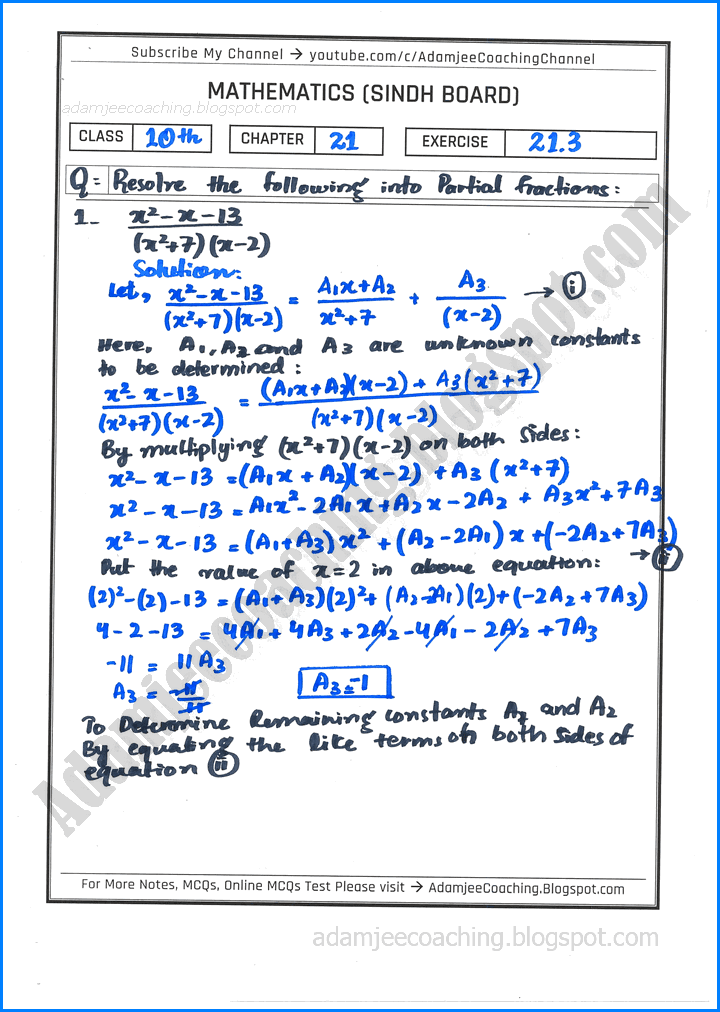 Subscribe My Channel → youtube.com/c/AdamjeeCoachingChannel
MATHEMATICS (SINDH BOARD)
adamjeecoaching.blogspot.com
CLASS 10th CHAPTER 21 EXERCISE 21.3
Q= Resolve the following into Partial fractions:
1- x²-x-13 / (x²+7)(x-2)
Solution:
Let, x²-x-13 / (x²+7)(x-2) = A₁x+A₂ / x²+7 + A₃ / (x-2) → (i)
Here, A₁, A₂ and A₃ are unknown constants
to be determined:
x²-x-13 / (x²+7)(x-2) = (A₁x+A₂)(x-2)+A₃(x²+7) / (x²+7)(x-2)
By multiplying (x²+7)(x-2) on both sides:
x²-x-13 = (A₁x+A₂)(x-2)+A₃(x²+7)
x²-x-13 = A₁x²-2A₁x+A₂x-2A₂+A₃x²+7A₃
x²-x-13 = (A₁+A₃)x²+(A₂-2A₁)x+(-2A₂+7A₃)
→ (ii)
Put the value of x=2 in above equation:
(2)²-(2)-13 = (A₁+A₃)(2)²+(A₂-2A₁)(2)+(-2A₂+7A₃)
4-2-13 = 4A₁+4A₃+2A₂-4A₁-2A₂+7A₃
-11 = 11A₃
A₃ = -11 / 11 A₃=-1
To Determine Remaining constants A₁ and A₂
By equating the like terms on both sides of
equation (ii)
Adamjeecoaching.blogspot.com
For More Notes, MCQs, Online MCQs Test Please visit → AdamjeeCoaching.Blogspot.com
adamjeecoaching.blogspot.com